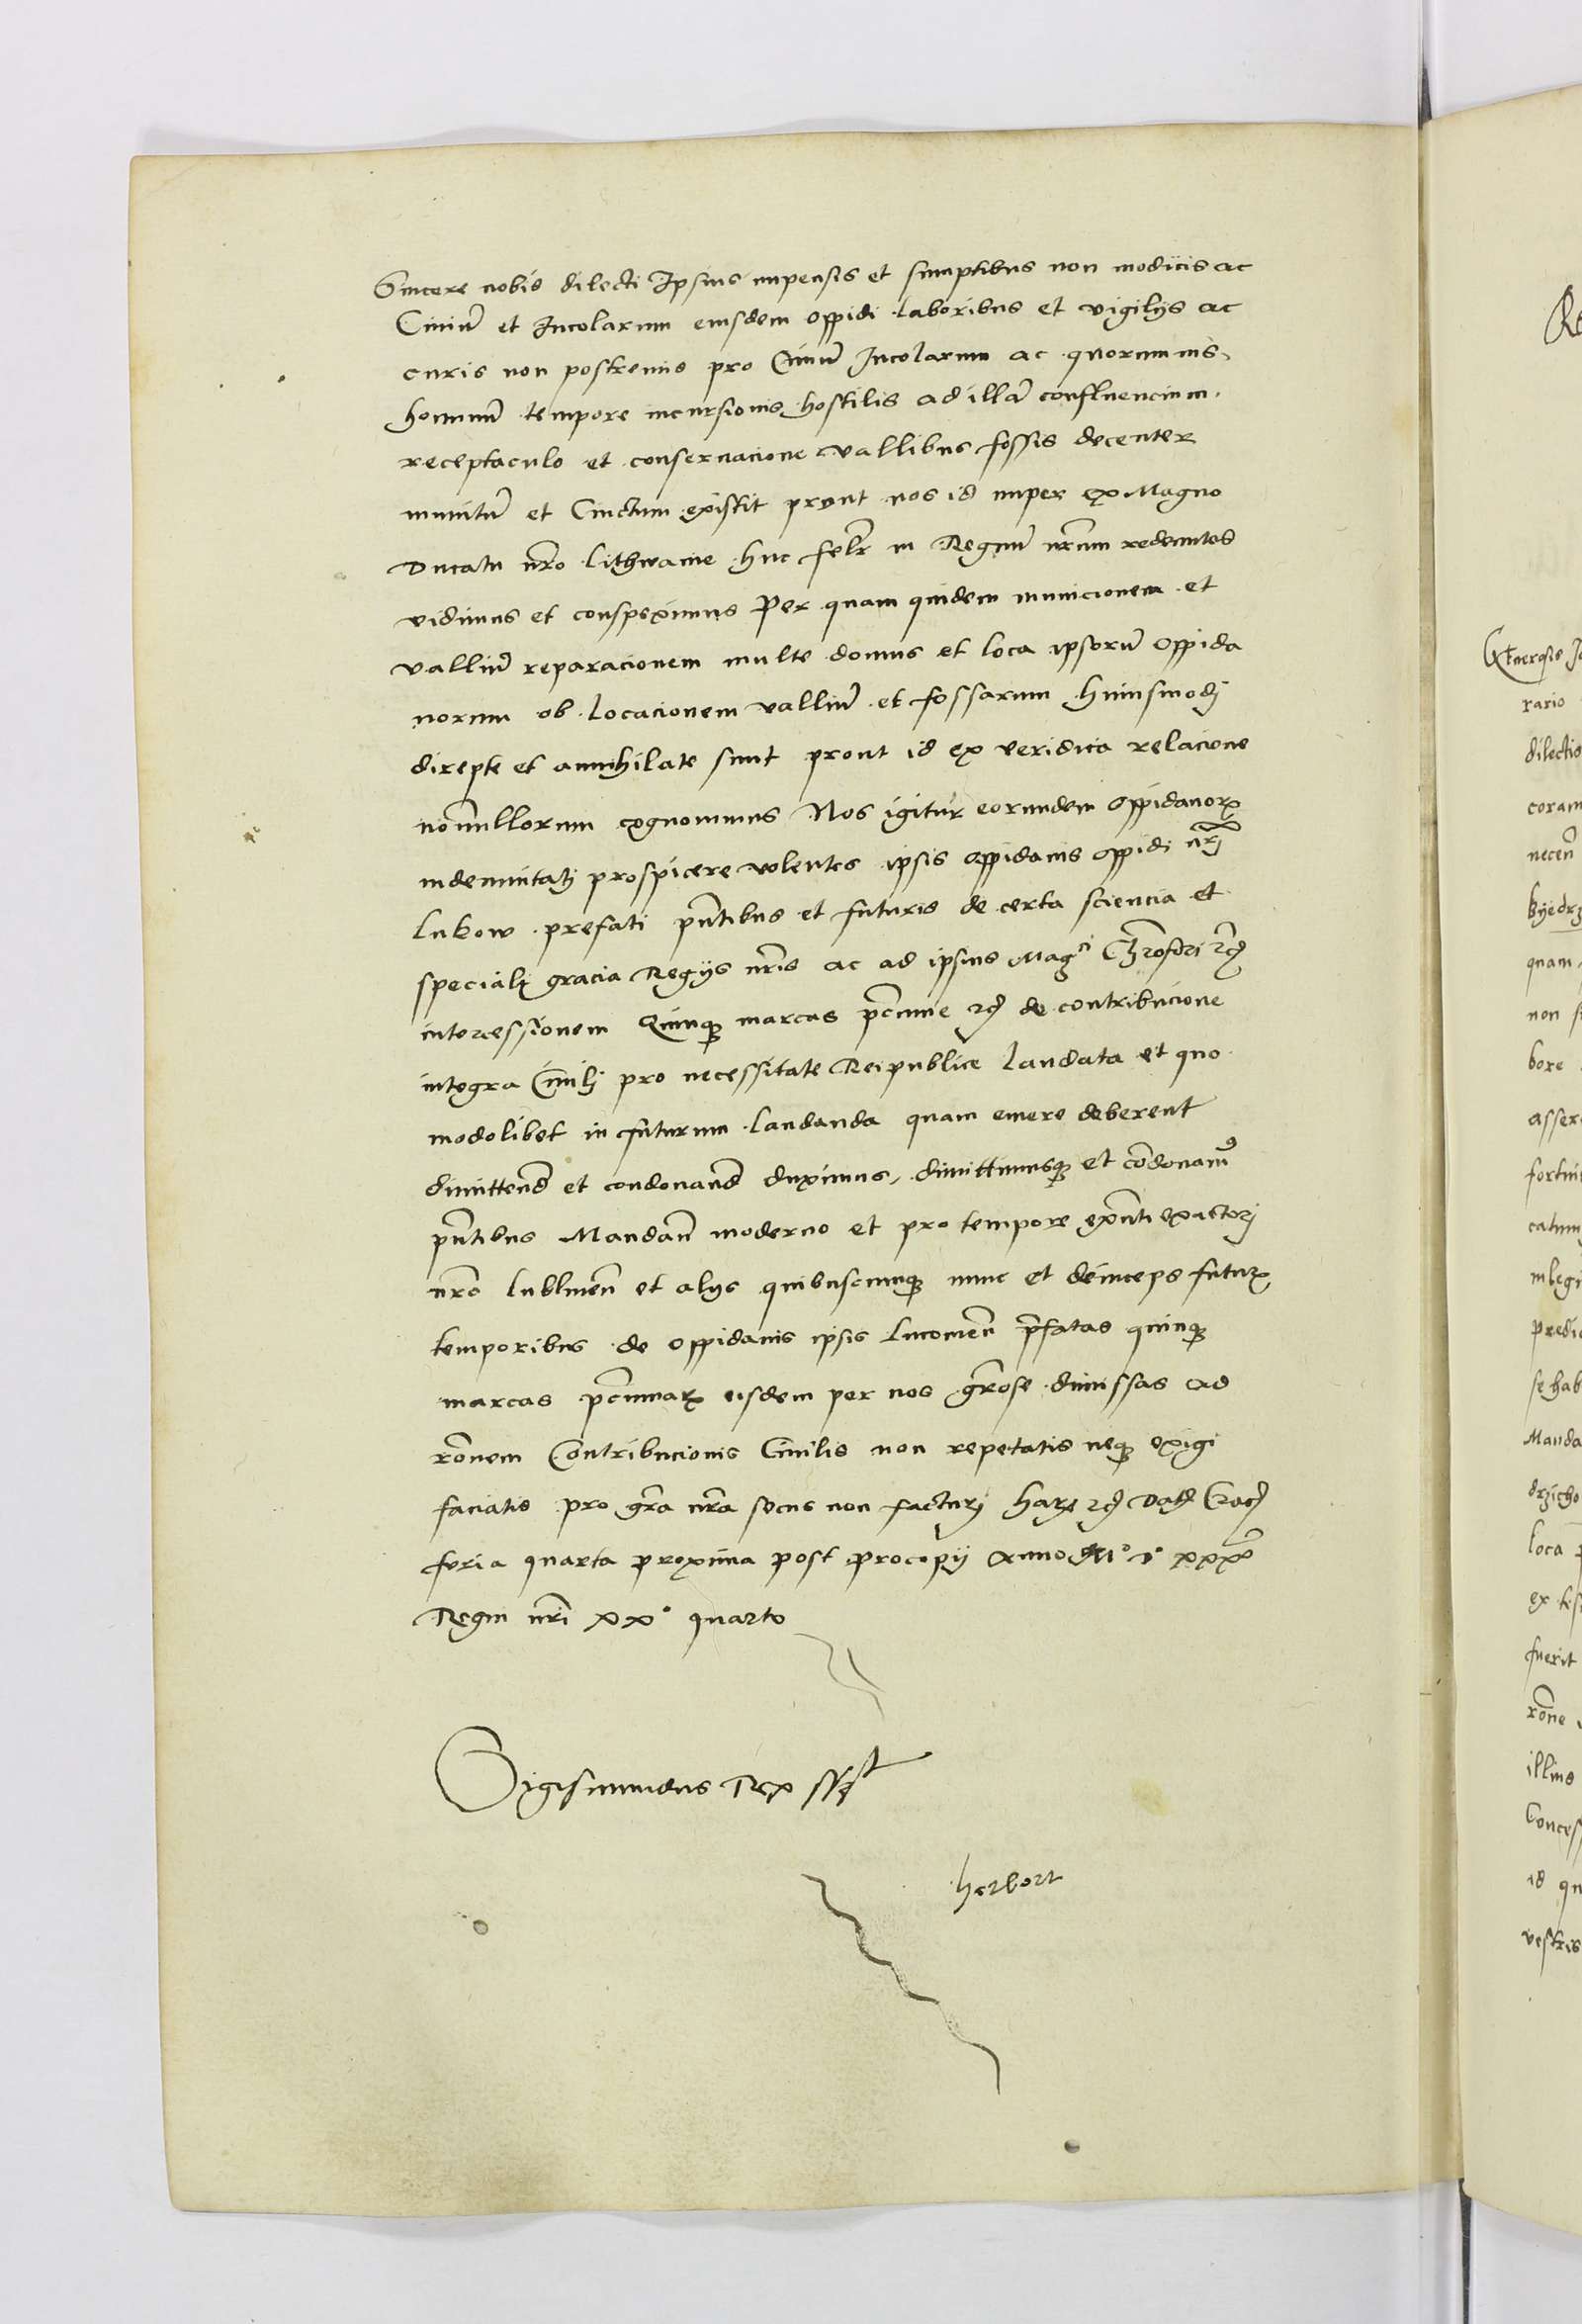 Sincere nobis dilecti Ipsius impensis et sumptibus non modicis ac
Civiu͂ et Incolarum eiusdem oppidi laboribus et vigilijs ac
curis non postremis pro Civiu͂ Incolarum ac quorumvis
hominu͂ tempore incursionis hostilis ad illa͂ confluencium
receptaculo et conservacione vallibus fossis decenter
munitu͂ et Cinctum existit prout nos id nuper ex Magno
Ducatu nr͂o Lithwanie huc felr͂ in Regnu͂ nr͂um redeuntes
vidimus et conspeximus Per quam quidem municionem et
valliu͂ reparacionem multe domus et loca ipsoru͂ oppida
norum ob locacionem valliu͂ et fossarum huiusmodj
direpte et annihilate sunt prout id ex veridica relacione
no͂nullorum cognovimus Nos igitur eorundem oppidanorꝝ
indemnitatj prospicere volentes ipsis oppidanis oppidi nr͂j
Lukow prefati pn͂tibus et futuris de certa sciencia et
specialj gracia Regijs nr͂is ac ad ipsius Mag^ci
intercessionem Quinqꝫ marcas pc͂unie de contribucione
integra Civilj pro necessitate Reipublice laudata et quo
modolibet in futurum laudanda quam emere deberent
dimittend͂ et condonand͂ duximus, dimittimusqꝫ et co͂donam⁹
pn͂tibus Mandan͂ moderno et pro tempore exn͂ti exactorj
nr͂o Lublinen͂ et alijs quibuscunqꝫ nunc et deinceps futurꝭ
temporibus de oppidanis ipsis Lucovien͂ pr͂fatas quinqꝫ
marcas pc͂uniarꝝ eisdem per nos gr͂ose dimissas ad
ro͂nem Contribucionis Civilis non repetatis neqꝫ exigi
faciatis pro gr͂a nr͂a secus non facturj Harꝝ
feria quarta proxima post procopij anno M° d° xxx°
Regni nr͂i xx° quarto
Sigismundus Rex sst
herbort
Generosis
rario
dilectis
coram
necen͂
quam
non
bore
predic
Manda
loca
fuerit
ro͂ne
illius
Concess
id
vestris